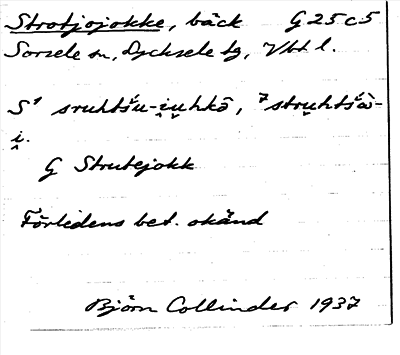 Strotjojokke, bäck G 25 c 5
Sorsele sn, Lycksele tg, Vbt l.
S¹ sruhtśu-i̭u̯hkō, ⁷stru̯htśàì-
i̭.
G Strutejokk
Förledens bet. okänd
Björn Collinder 1937